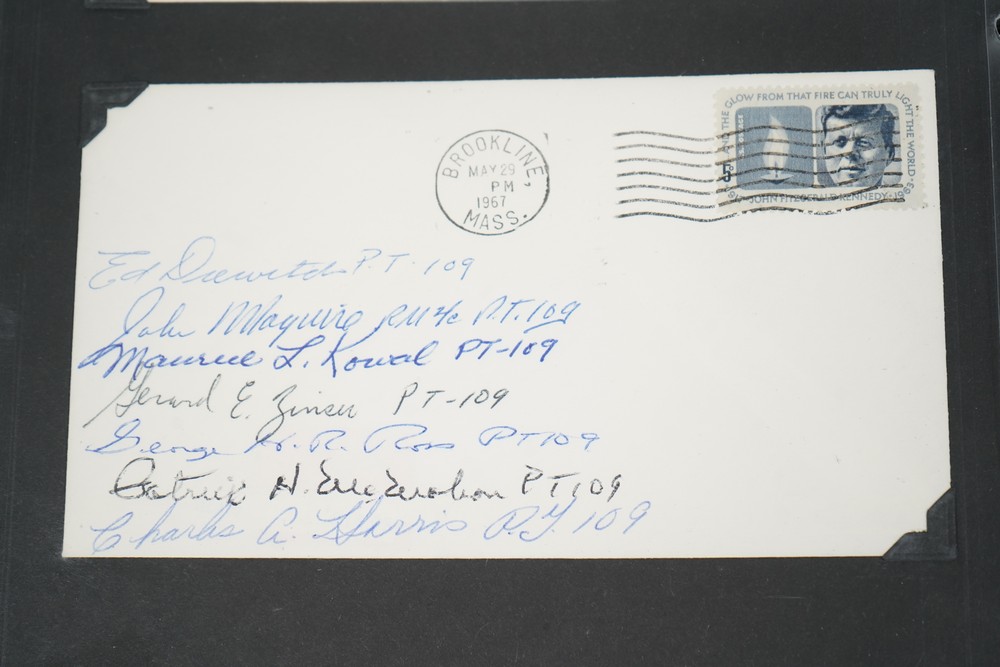 AND THE GLOW FROM THAT FIRE CAN TRULY LIGHT THE WORLD
5
JOHN FITZGERALD KENNEDY
BROOKLINE,
MAY 29
PM
1967
MASS.
Ed Drewitch P.T. 109
John Maguire RM2/c P.T. 109
Maurice L. Kowal PT-109
Gerard E. Zinser PT-109
George H. R. Ross PT109
Patrick H. McMahon PT109
Charles A. Harris P.T. 109